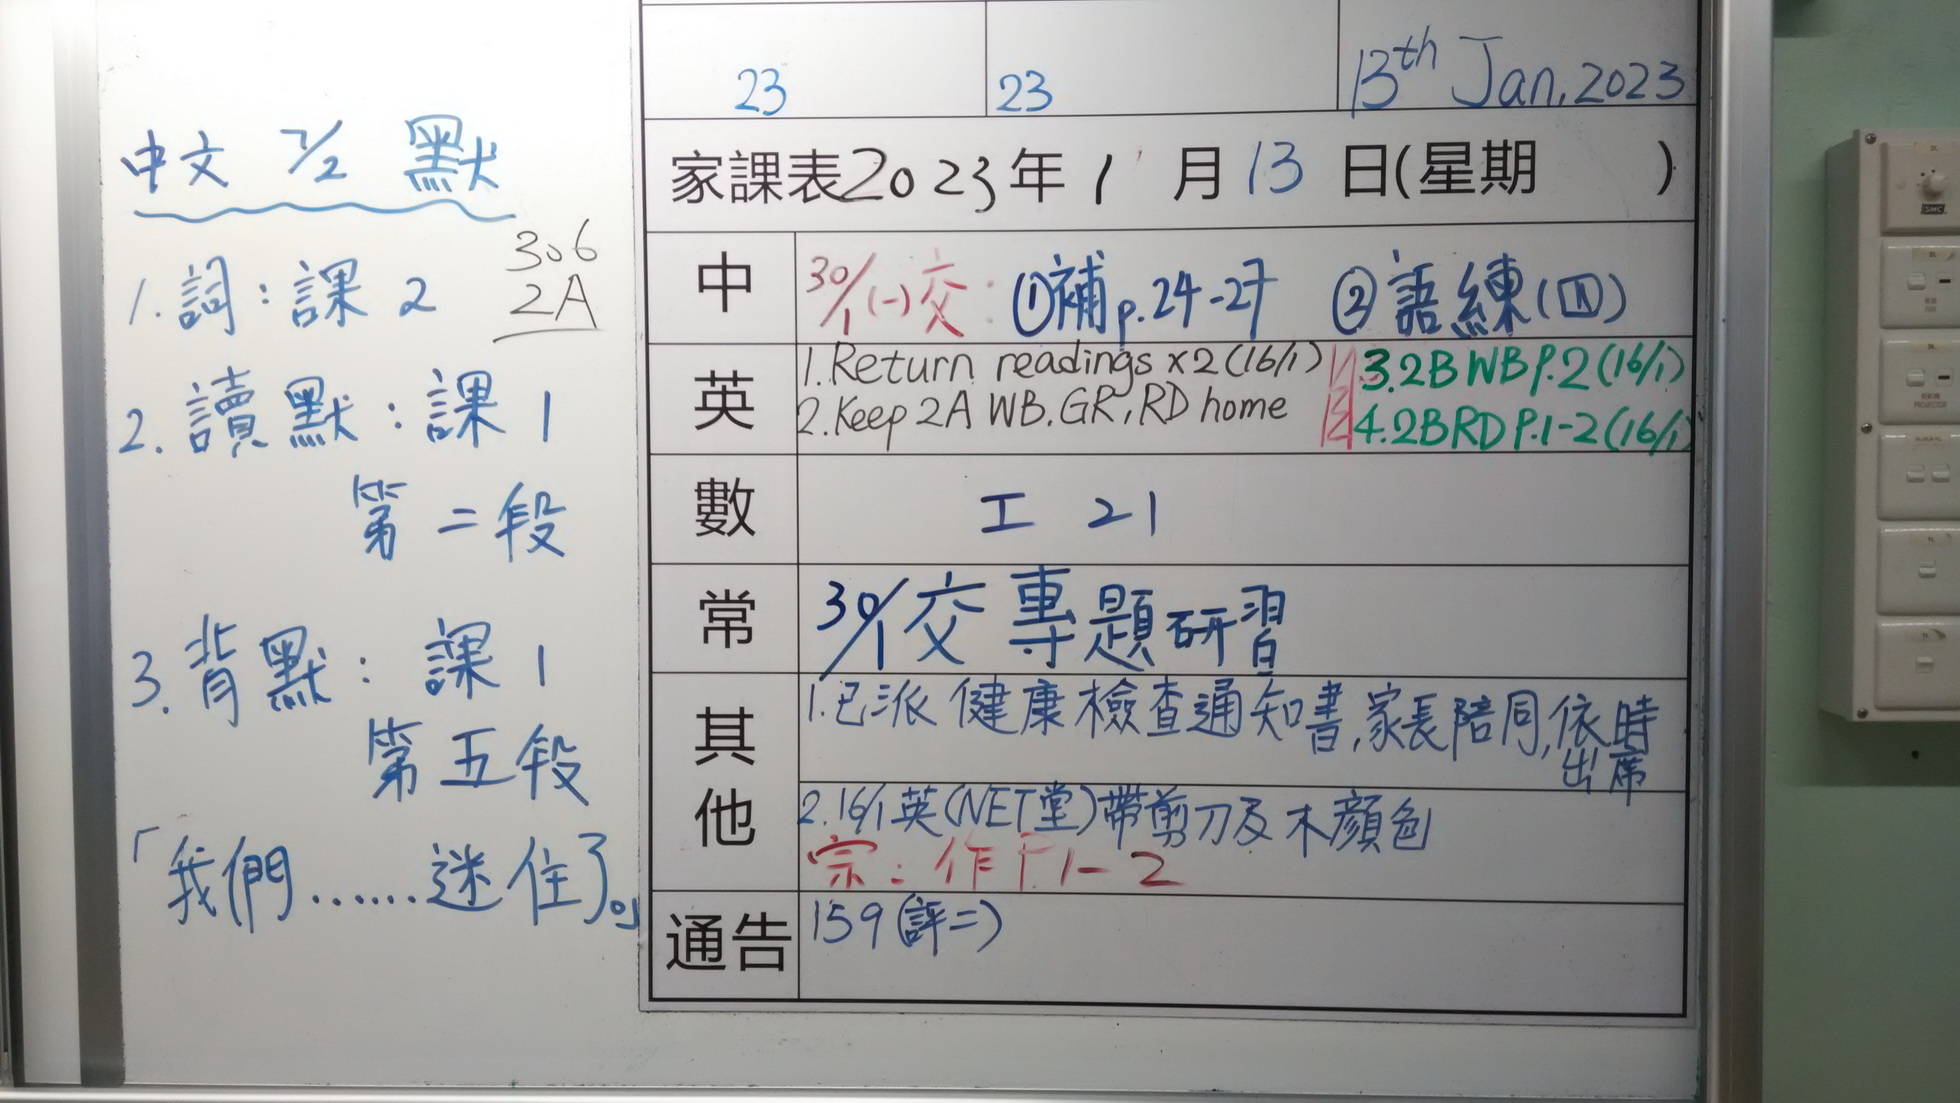 中文 7/2 默
306
2A
1. 詞：課 2
2. 讀默：課 1
第二段
3. 背默：課 1
第五段
「我們……迷住了。」
23
23
13th Jan, 2023
家課表 2023 年 1 月 13 日(星期 )
中
30/1(一)交：①補p.24-27 ②語練(四)
英
1. Return readings x2 (16/1)
2. Keep 2A WB, GR, RD home
3. 2B WB P.2 (16/1)
4. 2B RD P.1-2 (16/1)
數
工 21
常
30/1交 專題研習
其他
1. 已派健康檢查通知書，家長陪同，依時
出席
2. 16/1英(NET堂)帶剪刀及木顏色
宗：作 P.1-2
通告
159 (評二)